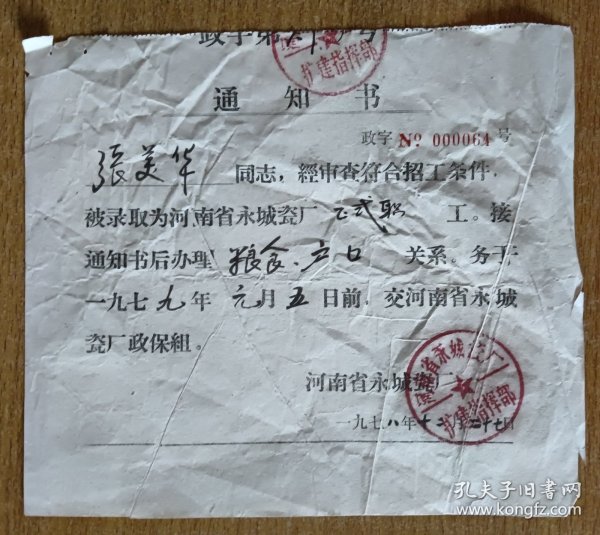 政字第
扩建指挥部
通知书
政字 № 000064 号
張美华 同志，經审查符合招工条件，
被录取为河南省永城瓷厂 正式职 工。接
通知书后办理 粮食、户口 关系。务于
一九七九年 元月五日前，交河南省永城
瓷厂政保組。
河南省永城瓷厂
河南省永城瓷厂
扩建指挥部
一九七八年十二月二十七日
孔夫子旧书网
www.kongfz.com